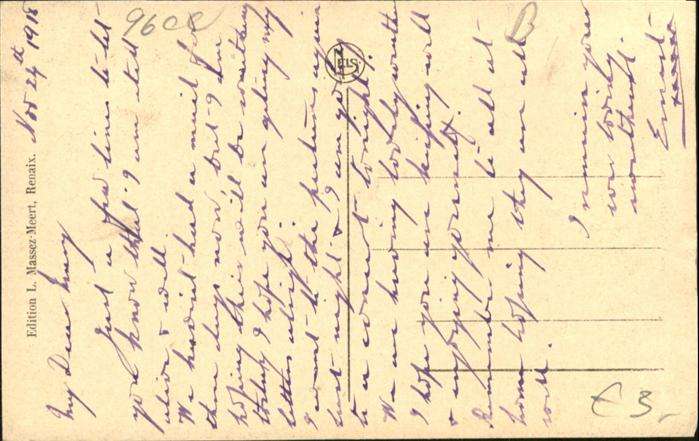 Nov 24th 1918
My Dear Mary
Just a few lines to let
you know that I am still
alive & well.
We havint had a mail for
three days now but I am
hoping their will be something
today I hope you are getting my
letters alright.
I went to the pictures again
last night & I am going
to a concert tonight.
We are having lovely weather
I hope you are keeping well
& enjoying yourself.
Remember me to all at
home hoping they are all
well.
I remain your
ever loving
Ernest
xxxxx
Edition L. Massez-Meert, Renaix.
96
B
€ 3,-